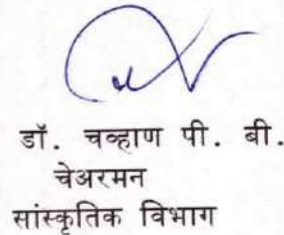 डॉ. चव्हाण पी. बी.
चेअरमन
सांस्कृतिक विभाग